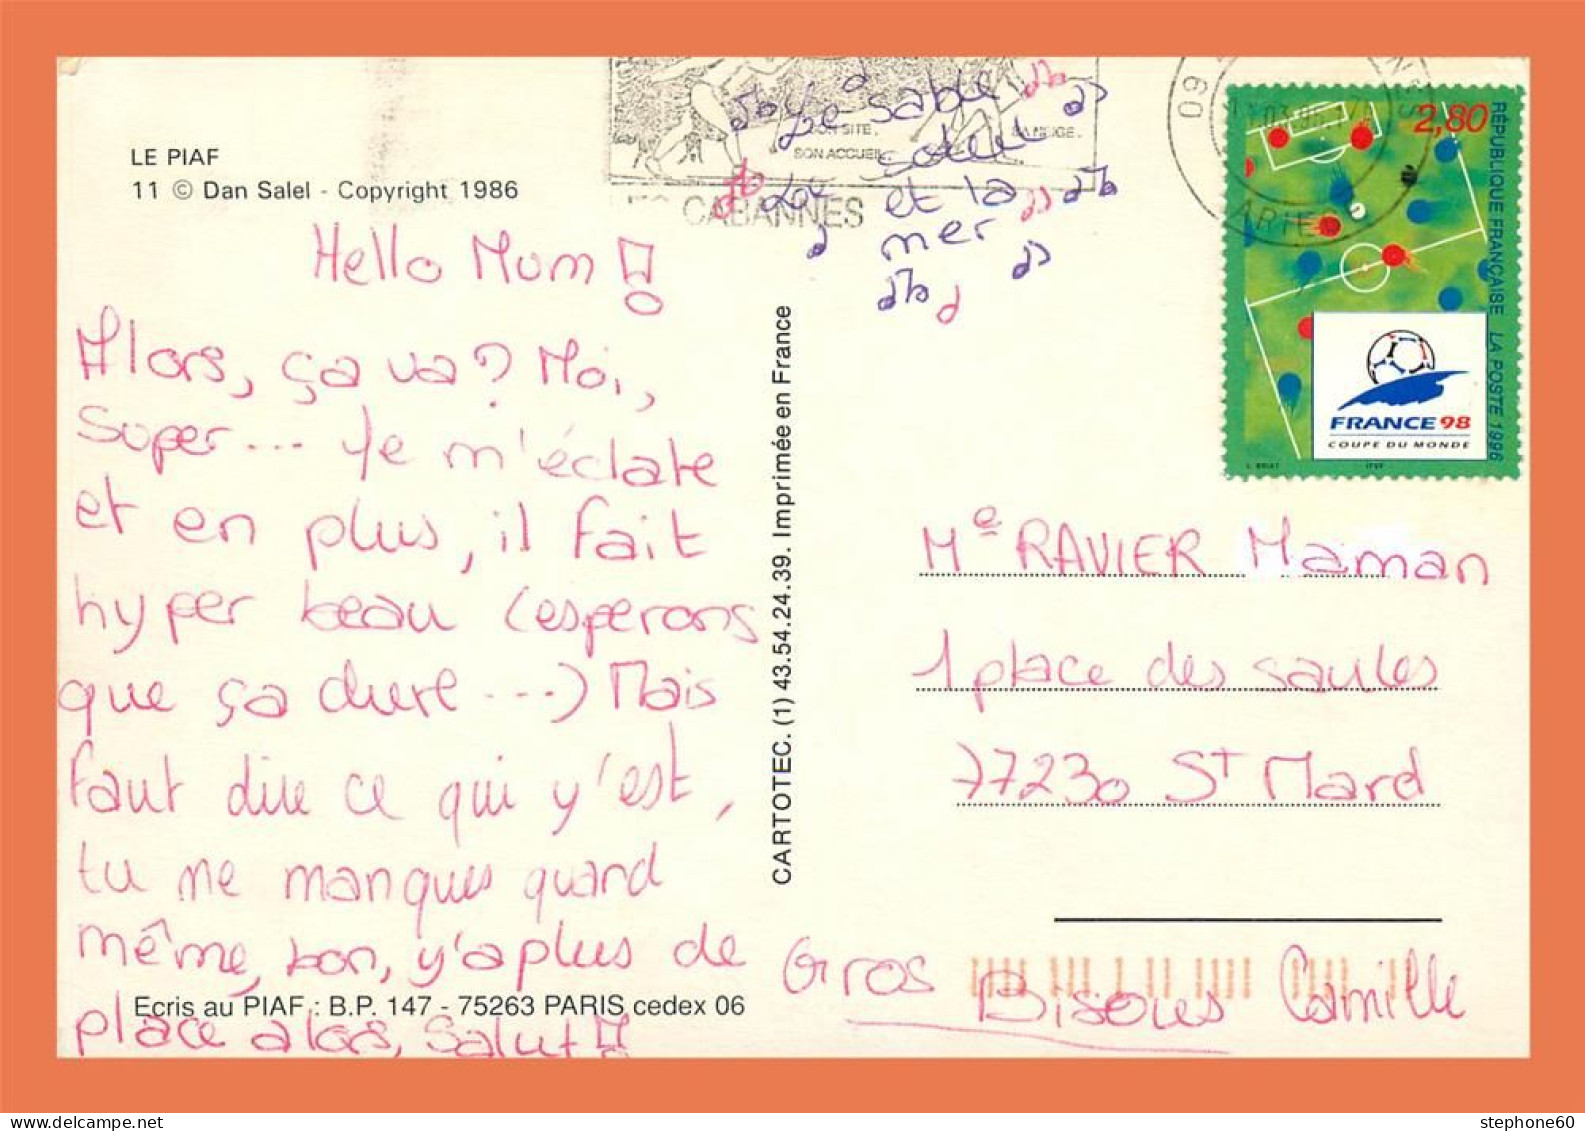 LE PIAF
11 © Dan Salel - Copyright 1986
Hello Mum !
Alors, ça va ? Moi,
Super... Je m'éclate
et en plus, il fait
hyper beau (esperons
que ça dure ...) Mais
faut dire ce qui y'est,
tu me manques quand
même, bon, y'a plus de
Ecris au PIAF : B.P. 147 - 75263 PARIS cedex 06
place alors, Salut !
Gros Bisous Camille
CARTOTEC. (1) 43.54.24.39. Imprimée en France
SON SITE.
SON ACCUEIL.
SA NEIGE.
CABANNES
Le sable
Le soleil
et la
mer
09
ARIE
2,80
RÉPUBLIQUE FRANÇAISE LA POSTE 1996
FRANCE 98
COUPE DU MONDE
L. BRIAT ITVF
Me RAVIER Maman
1 place des saules
77230 St Mard
stephone60